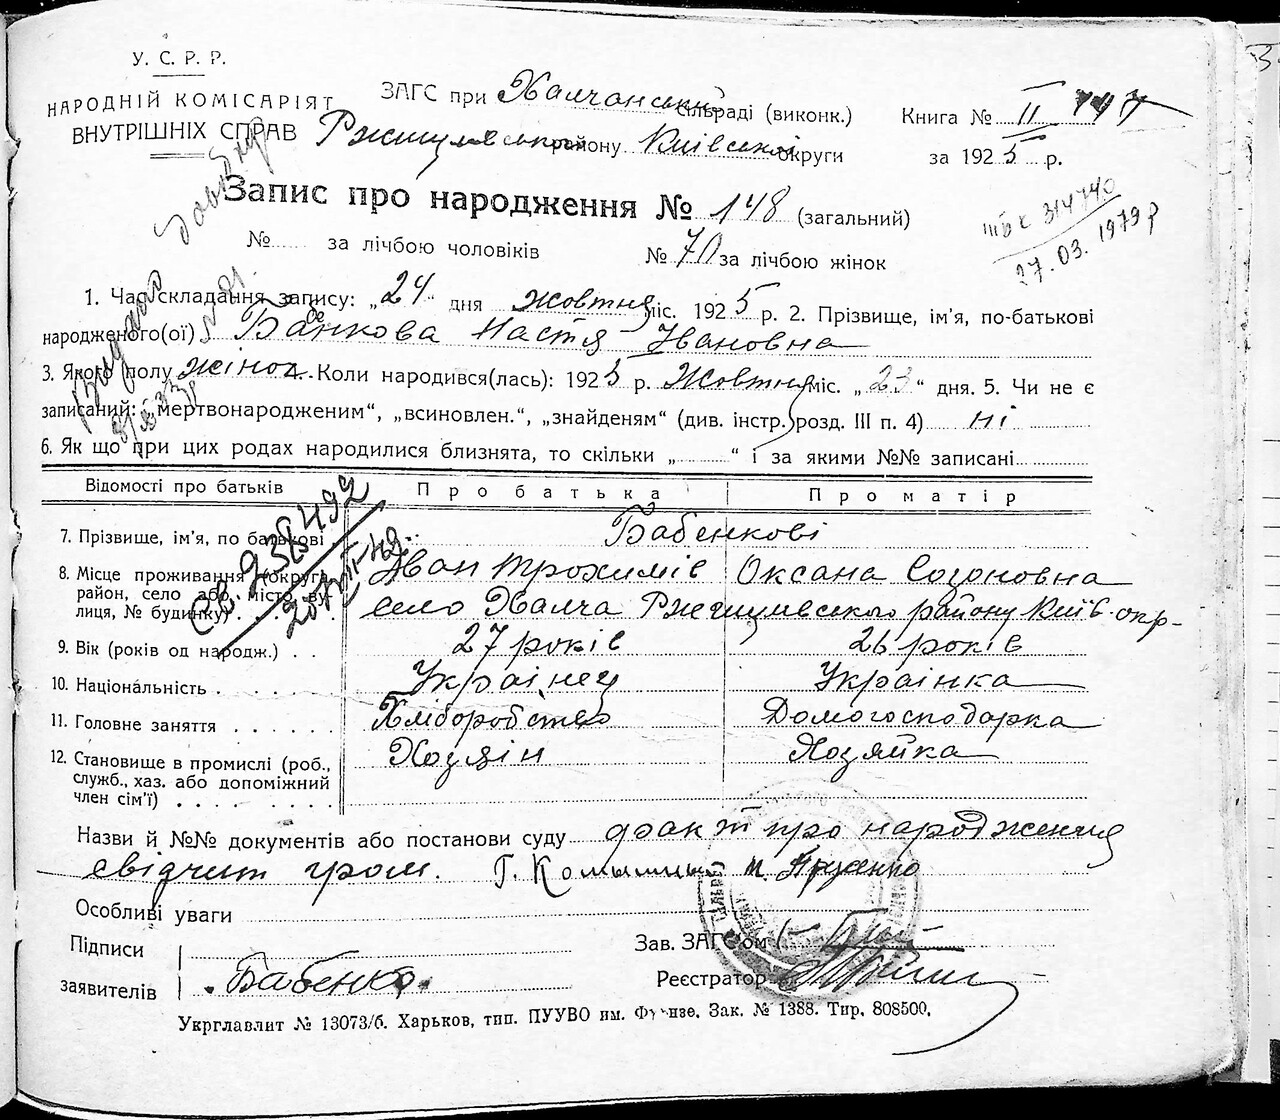 У. С. Р. Р.
НАРОДНІЙ КОМІСАРІЯТ
ВНУТРІШНІХ СПРАВ
ЗАГС при Халчанській сільраді (виконк.)
Книга № II 747
Ржищевському району Київської округи
за 1925 р.
Запис про народження № 148 (загальний)
№ за лічбою чоловіків № 70 за лічбою жінок
ІІІБК 314740
27.03.1979р
1. Час складання запису: „24“ дня жовтня міс. 1925 р. 2. Прізвище, ім'я, по-батькові
народженого(ої) Бабенкова Настя Івановна
3. Якого полу жіноч. 4. Коли народився(лась): 1925 р. Жовтня міс. „23“ дня. 5. Чи не є
записаний: „мертвонародженим“, „всиновлен.“, „знайденям“ (див. інстр. розд. III п. 4) ні
6. Як що при цих родах народилися близнята, то скільки „ “ і за якими №№ записані
Відомості про батьків Про батька Про матір
7. Прізвище, ім'я, по батькові Бабенкові
Іван Трохимів Оксана Созоновна
8. Місце проживання (округа,
район, село або місто, ву-
лиця, № будинку) село Халча Ржищевського району Київ. окр-
9. Вік (років од народж.) 27 років 26 років
10. Національність Украінец Украінка
11. Головне заняття Хліборобство Домогосподарка
12. Становище в промислі (роб.,
служб., хаз. або допоміжний
член сім'ї) Хозяін Хозяйка
Назви й №№ документів або постанови суду факт про народження
свідчит гром. Г.
Особливі уваги
Підписи
заявителів Бабенко
Зав. ЗАГС'ом
Реєстратор
Укрглавліт № 13073/б. Харьков, тип. ПУУВО им. Фрунзе. Зак. № 1388. Тир. 808500.